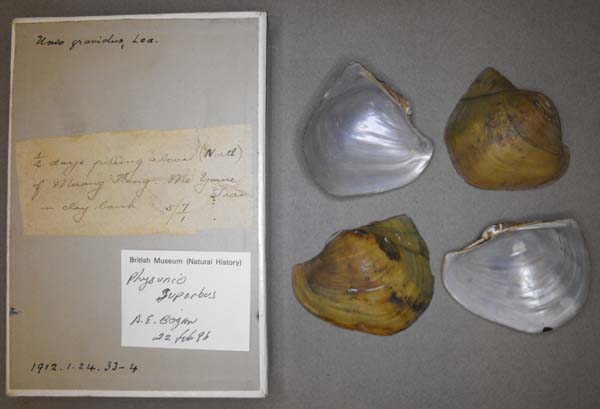 Unio gravidus, Lea.
½ days poling above (North)
of Muang Kong. Me Yome
Siam
in clay bank 5/7/1
British Museum (Natural History)
Physunio
superbus
A.E. BOGAN
22 feb 96
1912.1.24.33-4